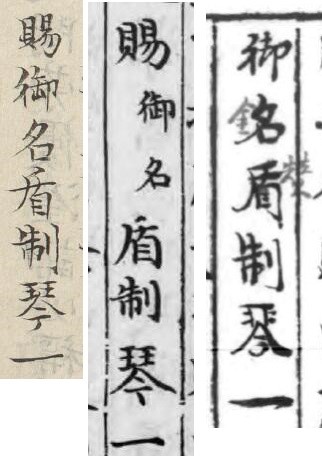 賜御名盾制琴一
賜御名盾制琴一
御名盾制琴一